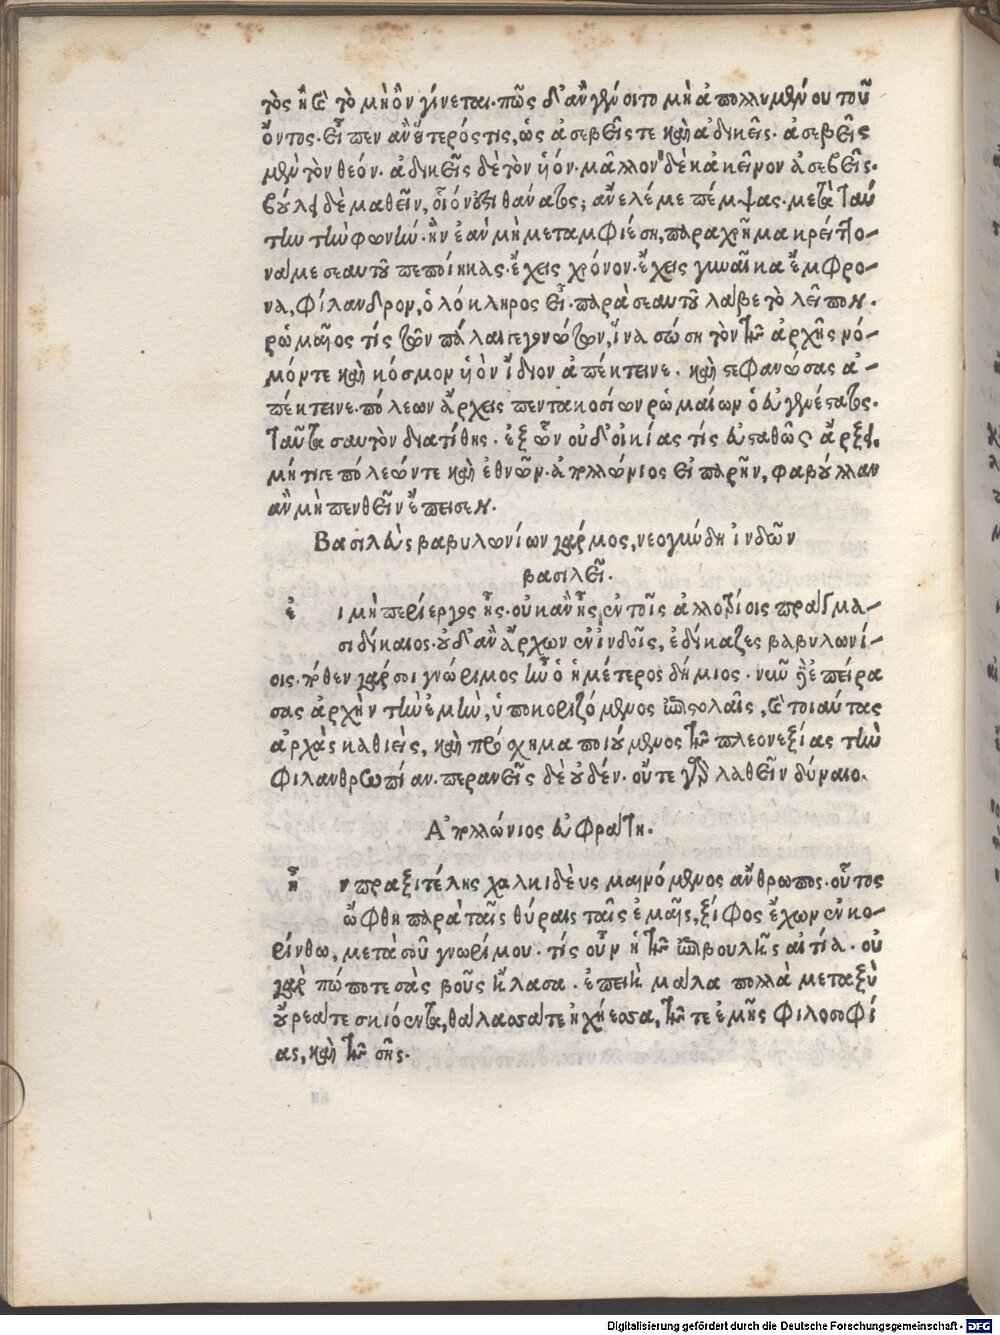 τὸς ἢ ὅτι τὸ μὴ ὂν γίνεται. πῶς δ' ἂν γένοιτο μὴ ἀπολλυμένου τοῦ
ὄντος. εἶπεν ἂν ἕτερός τις, ὡς ἀσεβεῖς τε καὶ ἀδικεῖς. ἀσεβεῖς
μὲν τὸν θεόν. ἀδικεῖς δὲ τὸν ὑόν. μᾶλλον δὲ κἀκεῖνον ἀσεβεῖς.
βούλει δὲ μαθεῖν, οἷόν ἐστι θάνατος; ἄνελέ με πέμψας. μετὰ ταύ
την τὴν φωνὴν. ἣν ἐὰν μὴ μεταμφιέσῃ, παραχρῆμα κρείττο-
νά με σεαυτοῦ πεποίηκας. ἔχεις χρόνον. ἔχεις γυναῖκα ἔμφρο-
να, φίλανδρον, ὁλόκληρος εἶ. παρὰ σεαυτοῦ λάβε τὸ λεῖπον.
ῥωμαῖος τίς τῶν πάλαι γεγονότων, ἵνα σώσῃ τὸν τῆς ἀρχῆς νό-
μόν τε καὶ κόσμον ὑὸν ἴδιον ἀπέκτεινε. καὶ στεφανώσας ἀ-
πέκτεινε. πόλεων ἄρχεις πεντακοσίων ῥωμαίων ὁ εὐγενέστατος.
ταῦτα σαυτὸν διατίθης. ἐξ ὧν οὐδ' οἰκίας τίς εὐσταθῶς ἄρξει.
μήτιγε πόλεών τε καὶ ἐθνῶν. ἀπολλώνιος εἰ παρῆν, φαβούλλαν
ἂν μὴ πενθεῖν ἔπεισεν.
Βασιλεὺς βαβυλωνίων γάρμος, νεογύνδῃ ἰνδῶν
βασιλεῖ.
ἐ ι μὴ περίεργος ἦς. οὐκ ἂν ἦς ἐν τοῖς ἀλλοτρίοις πράγμα-
σι δίκαιος. οὐδ' ἂν ἄρχων ἐν ἰνδοῖς, ἐδίκαζες βαβυλωνί-
οις. πόθεν γάρ σοι γνώριμος ἦν ὁ ἡμέτερος δήμιος. νῦν δὲ ἐπείρα
σας ἀρχὴν τὴν ἐμὴν, ὑποκοριζόμενος ἐπιστολαῖς, καὶ τοιαύτας
ἀρχὰς καθιεὶς, καὶ πρόσχημα ποιούμενος τῆς πλεονεξίας τὴν
φιλανθρωπίαν. περανεῖς δὲ οὐδέν. οὔτε γὰρ λαθεῖν δύναιο.
Ἀπολλώνιος εὐφράτῃ.
ἦ ν πραξιτέλης χαλκιδεὺς μαινόμενος ἄνθρωπος. οὗτος
ὤφθη παρὰ ταῖς θύραις ταῖς ἐμαῖς, ξίφος ἔχων ἐν κο-
ρίνθω, μετὰ σοῦ γνωρίμου. τίς οὖν ἡ τῆς ἐπιβουλῆς αἰτία. οὐ
γὰρ πώποτε σὰς βοῦς ἤλασα. ἐπειὴ μάλα πολλὰ μεταξὺ
οὔρεά τε σκιόεντα, θάλασσά τε ἠχήεσσα, τῆς τε ἐμῆς φιλοσοφί
ας, καὶ τῆς σῆς.
Digitalisierung gefördert durch die Deutsche Forschungsgemeinschaft - DFG